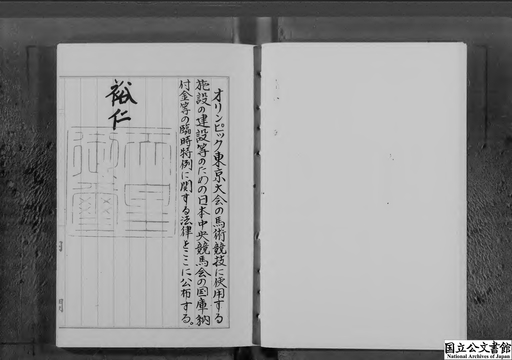 オリンピック東京大会の馬術競技に使用する
施設の建設等のための日本中央競馬会の国庫納
付金等の臨時特例に関する法律をここに公布する。
裕仁
天皇
御璽
国立公文書館
National Archives of Japan